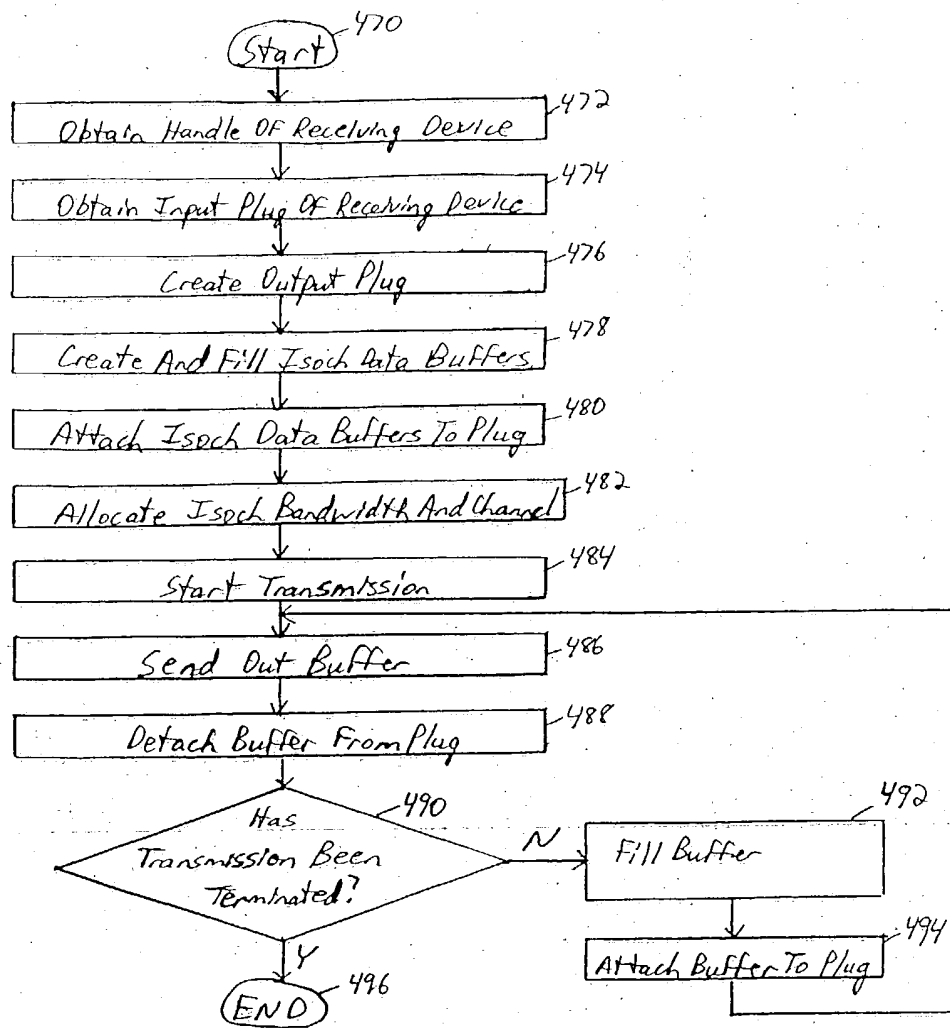 470
Start
472
Obtain Handle Of Receiving Device
474
Obtain Input Plug Of Receiving Device
476
Create Output Plug
478
Create And Fill Isoch Data Buffers
480
Attach Isoch Data Buffers To Plug
482
Allocate Isoch Bandwidth And Channel
484
Start Transmission
486
Send Out Buffer
488
Detach Buffer From Plug
490
Has
Transmission Been
Terminated?
N
492
Fill Buffer
494
Attach Buffer To Plug
Y
496
END